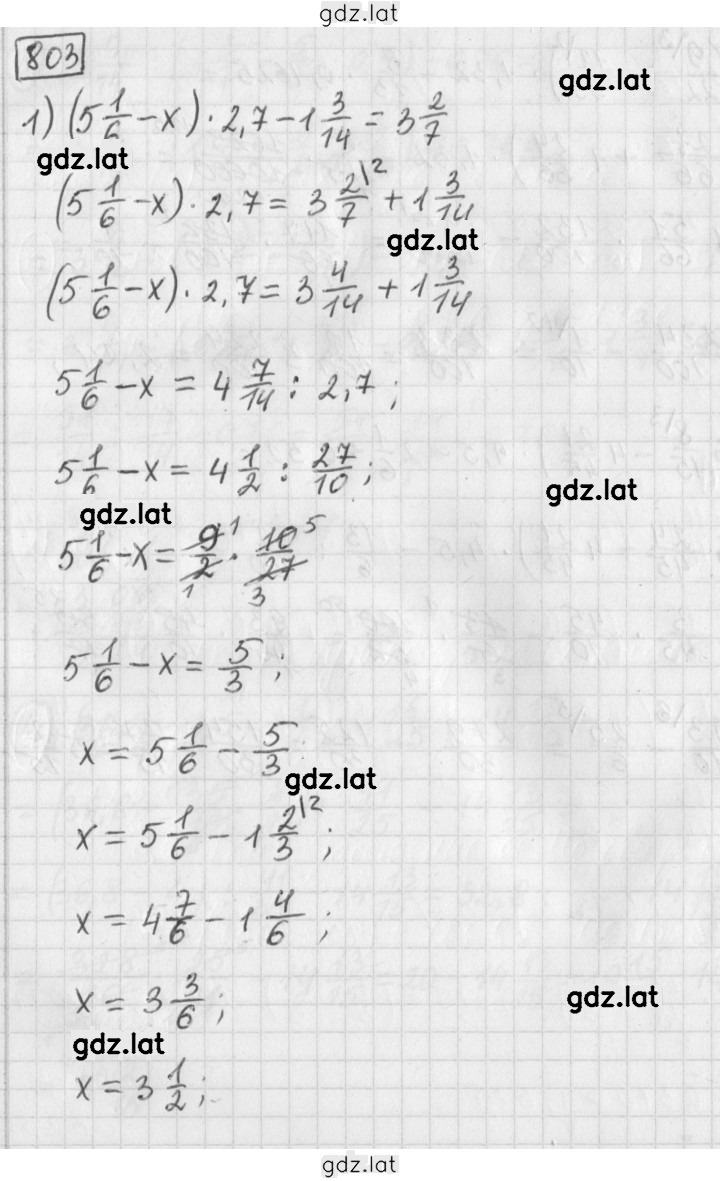 gdz.lat
803
gdz.lat
1) (5 1/6 - x) · 2,7 - 1 3/14 = 3 2/7
gdz.lat
(5 1/6 - x) · 2,7 = 3 2/7 |2 + 1 3/14
gdz.lat
(5 1/6 - x) · 2,7 = 3 4/14 + 1 3/14
5 1/6 - x = 4 7/14 : 2,7 ;
5 1/6 - x = 4 1/2 : 27/10 ;
gdz.lat
gdz.lat
5 1/6 - x = 9 1/2 1 · 10 5/27 3
5 1/6 - x = 5/3 ;
x = 5 1/6 - 5/3
gdz.lat
x = 5 1/6 - 1 2/3 |2 ;
x = 4 7/6 - 1 4/6 ;
x = 3 3/6 ;
gdz.lat
gdz.lat
x = 3 1/2 ;
gdz.lat